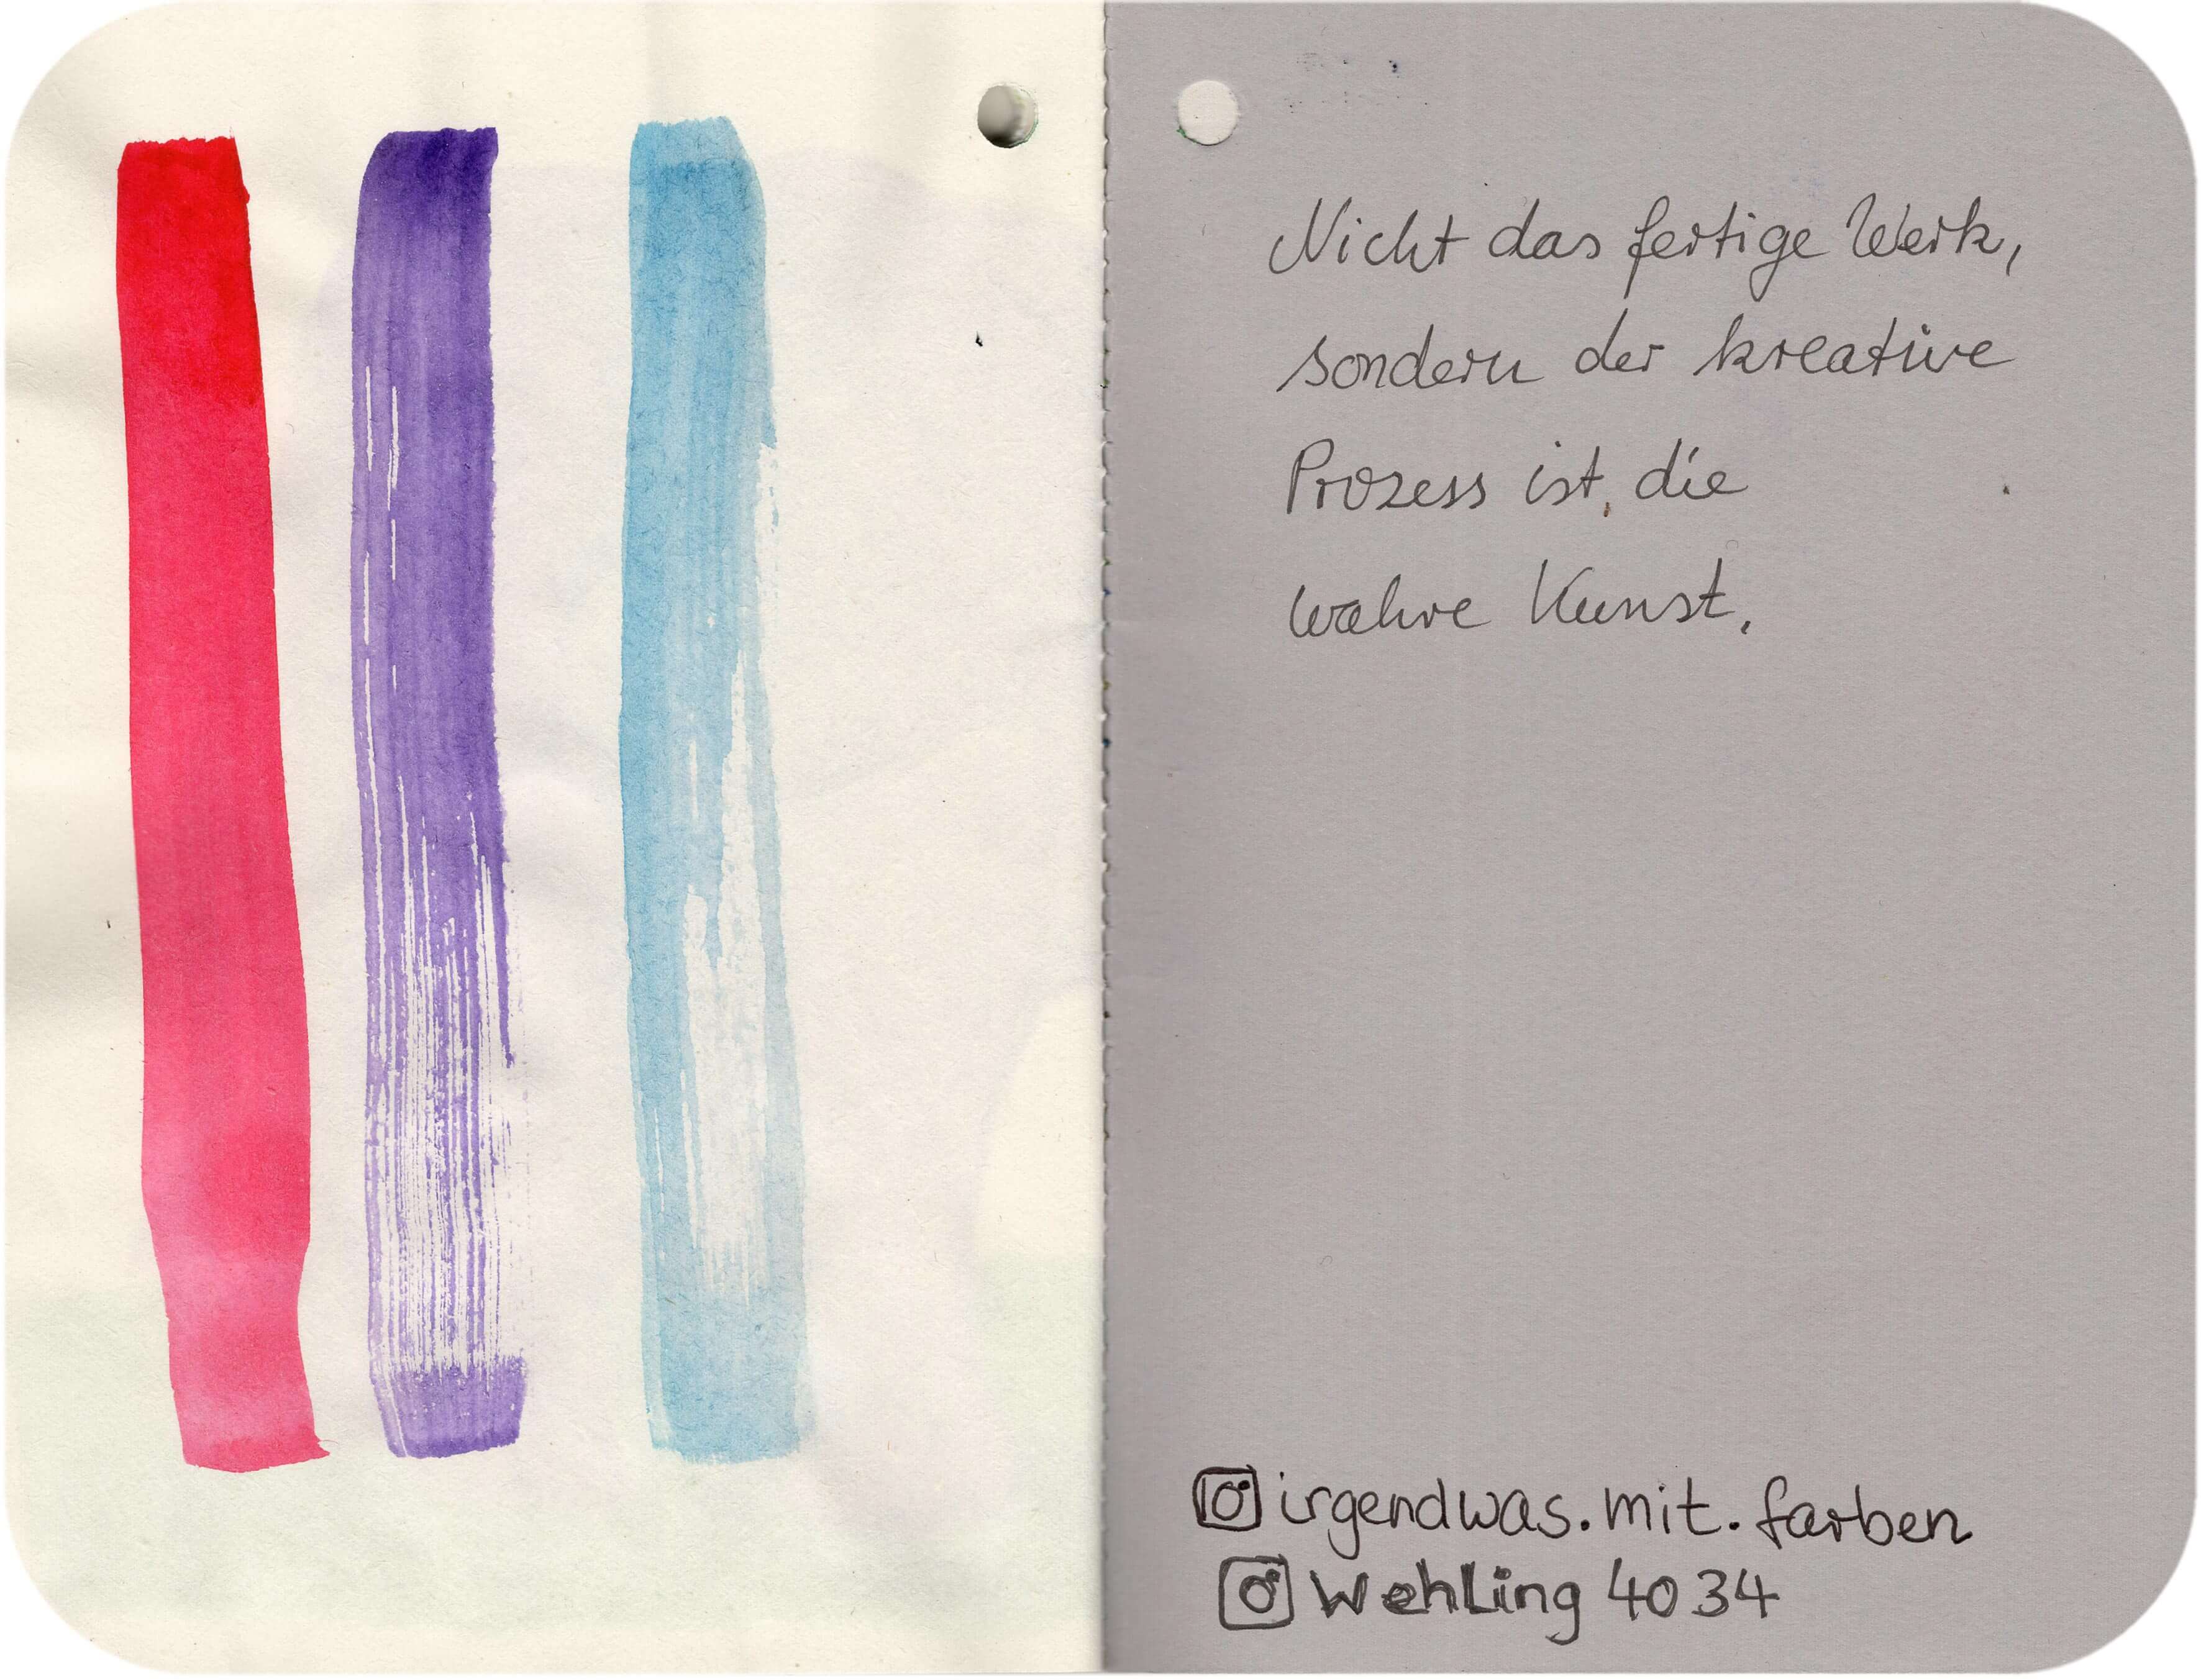 Nicht das fertige Werk,
sondern der kreative
Prozess ist, die
wahre Kunst.
irgendwas.mit.farben
Wehling 4034